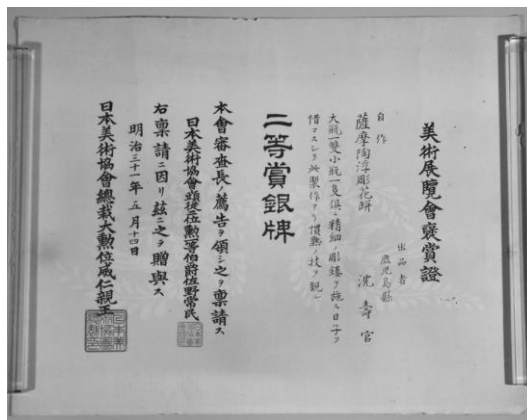 美術展覧會褒賞證
出品者
鹿児島縣
沈壽官
自作
薩摩陶浮彫花瓶
大瓶一雙小瓶一隻倶ニ精細ノ彫鏤ヲ施シ日子ヲ
惜マスシテ此製作アリ慣熟ノ技ヲ観ル
二等賞銀牌
本會審査長ノ薦告ヲ領シ之ヲ稟請ス
日本美術協會頭従二位勲一等伯爵佐野常民
右稟請ニ因リ玆ニ之ヲ贈與ス
明治三十一年五月十四日
日本美術協會總裁大勲位威仁親王